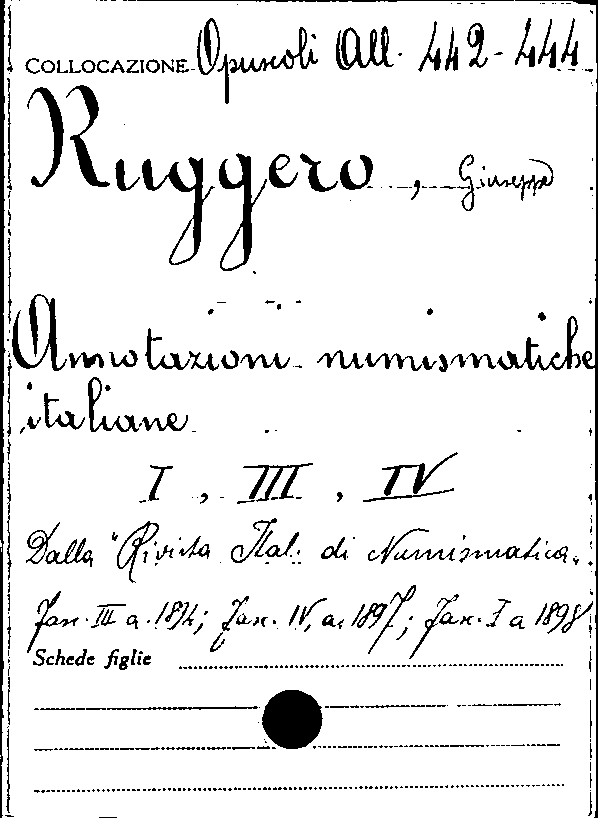 COLLOCAZIONE Opuscoli All. 442-444
Ruggero, Giuseppe
Annotazioni numismatiche
italiane
I, III, IV
Dalla "Rivista Ital. di Numismatica.
Fasc. III a. 1894; Fasc. IV, a. 1897; Fasc. I a 1898
Schede figlie